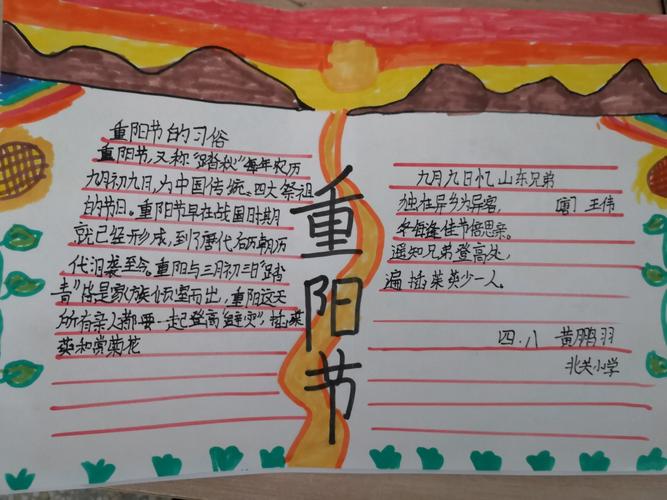 重阳节的习俗
重阳节,又称"踏秋"每年农历
九月初九日,为中国传统四大祭祖
的节日。重阳节早在战国时期
就已经形成,到了唐代
代沿袭至今。重阳与三月初三日"踏
青"皆是家族倾室而出,重阳这天
所有亲人都要一起登高"避灾",插茱
萸和赏菊花
重阳节
九月九日忆山东兄弟
独在异乡为异客,
王伟
每逢佳节倍思亲。
遥知兄弟登高处,
遍插茱萸少一人。
四.八 黄鹏羽
北关小学